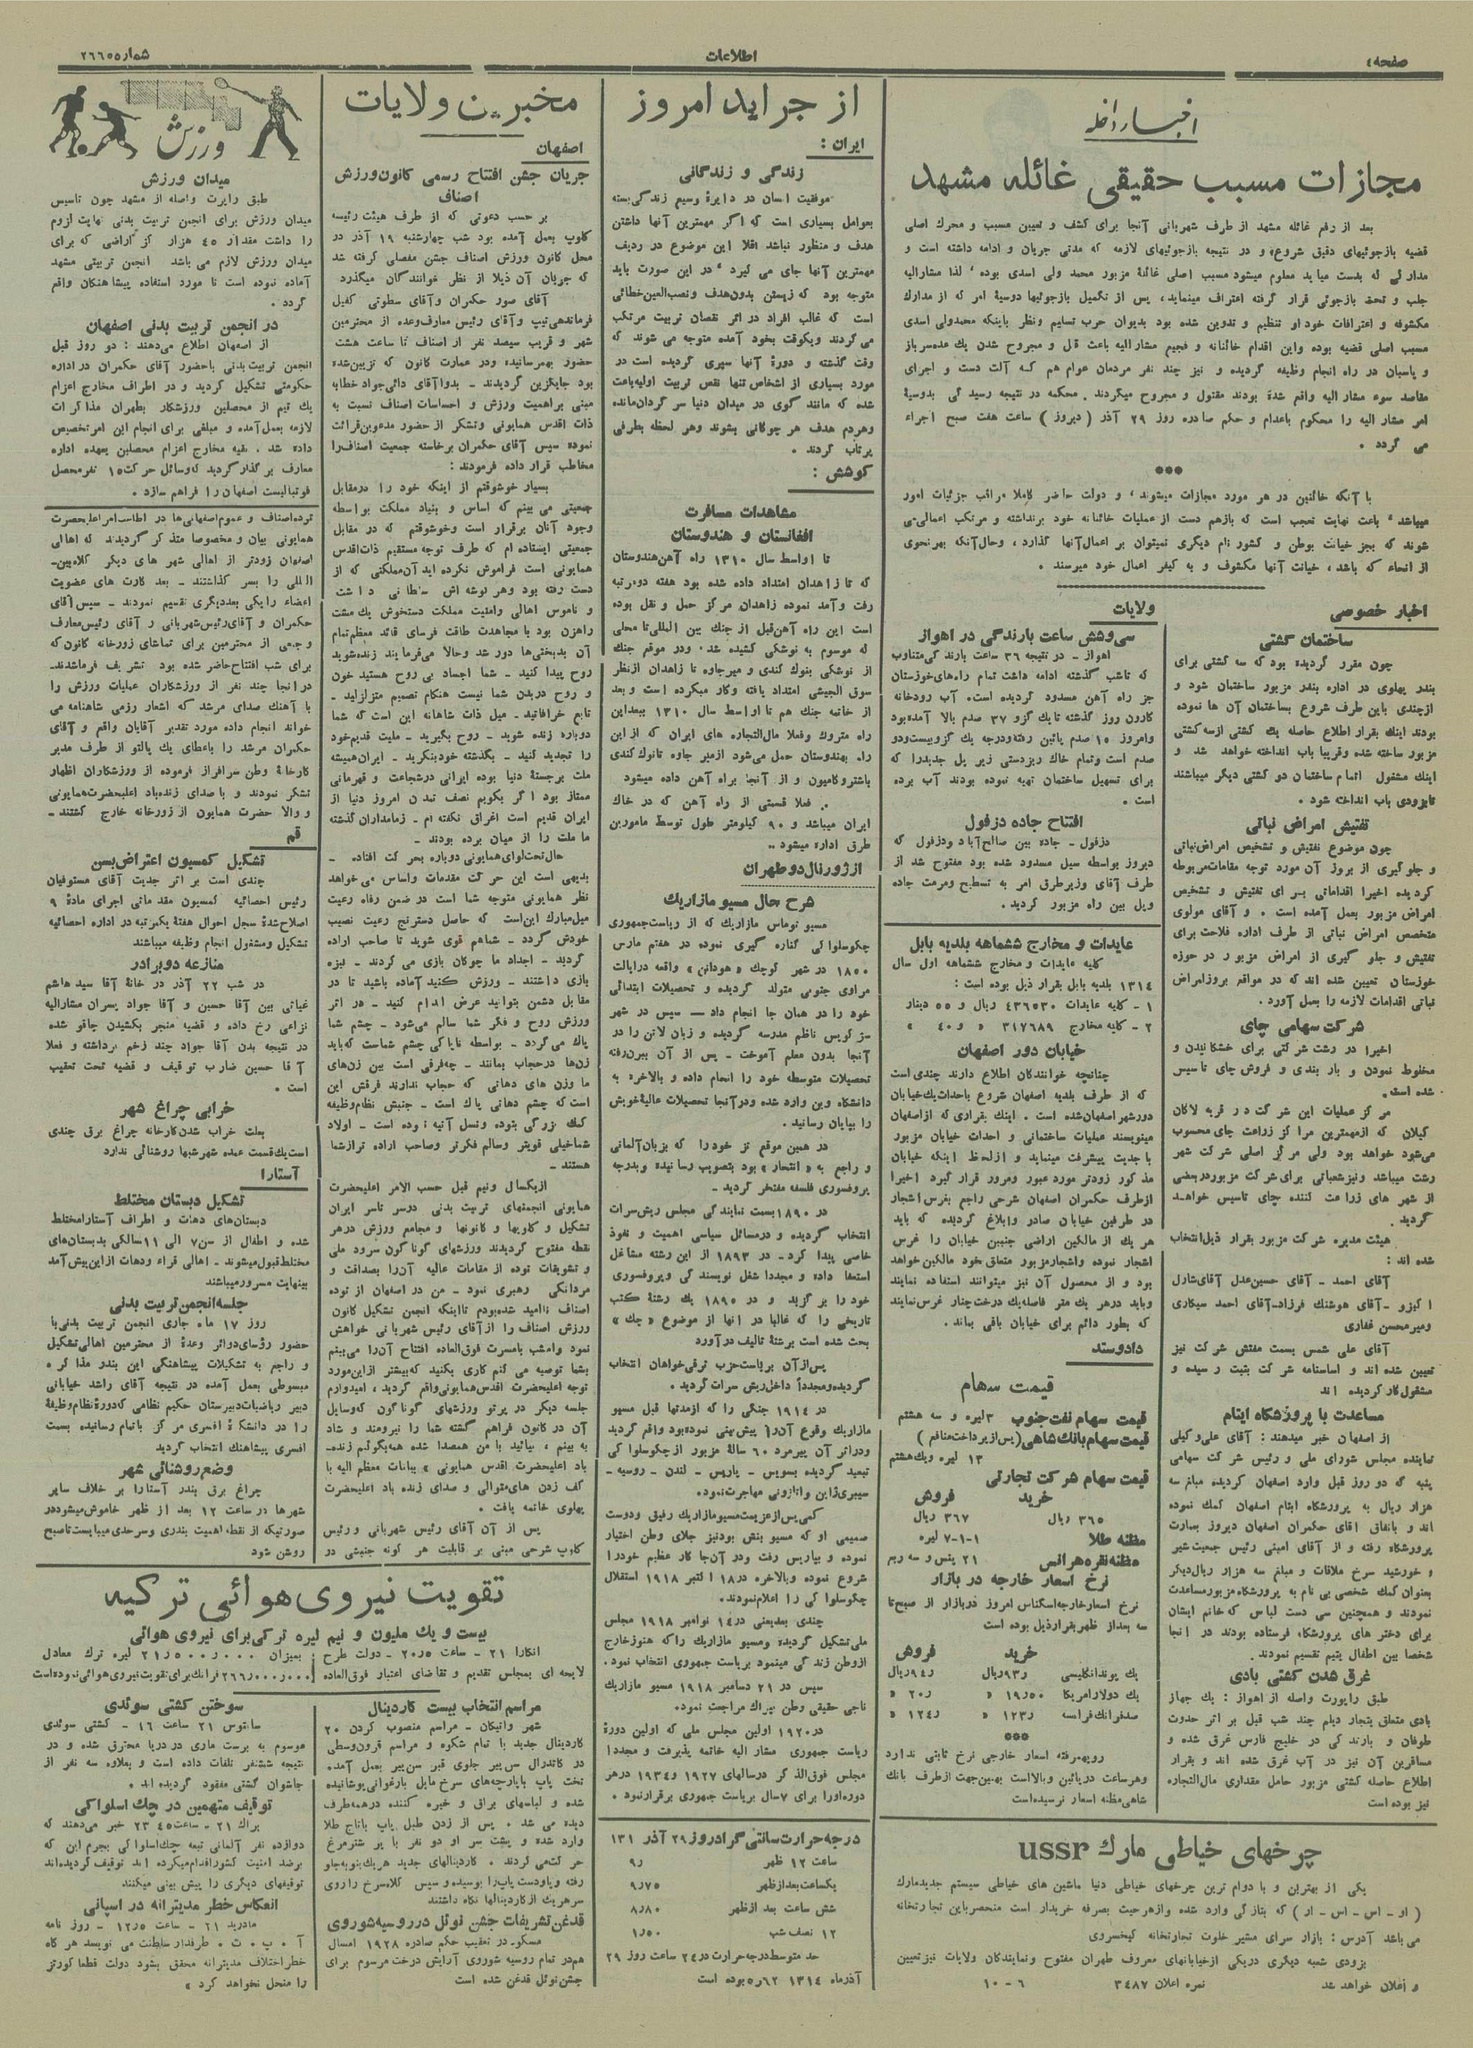 صفحه ٤
اطلاعات
شماره ٢٦٦٥
اخبار داخله
مجازات مسبب حقیقی غائله مشهد
بعد از رفع غائله مشهد از طرف شهربانی آنجا برای کشف و تعیین مسبب و محرک اصلی
قضیه بازجوئیهای دقیق شروع و در نتیجه بازجوئیهای لازمه که مدتی جریان و ادامه داشته است و
مدارکی که بدست میآید معلوم میشود مسبب اصلی غائلهٔ مزبور محمد ولی اسدی بوده لذا مشارالیه
جلب و تحت بازجوئی قرار گرفته اعتراف مینماید، پس از تکمیل بازجوئیها دوسیهٔ امر که از مدارک
مکشوفه و اعترافات خود او تنظیم و تدوین شده بود بدیوان حرب تسلیم ونظر باینکه محمدولی اسدی
مسبب اصلی قضیه بوده واین اقدام خائنانه و فجیع مشارالیه باعث قتل و مجروح شدن یک عده سرباز
و پاسبان در راه انجام وظیفه گردیده و نیز چند نفر مردمان عوام هم که آلت دست و اجرای
مقاصد سوء مشارالیه واقع شده بودند مقتول و مجروح میگردند. محکمه در نتیجه رسیدگی بدوسیهٔ
امر مشارالیه را محکوم باعدام و حکم صادره روز ٢٩ آذر (دیروز) ساعت هفت صبح اجراء
می گردد .
***
با آنکه خائنین در هر مورد مجازات میشوند، و دولت حاضر کاملا مراقب جزئیات امور
میباشد باعث نهایت تعجب است که بازهم دست از عملیات خائنانه خود برنداشته و مرتکب اعمالی می
شوند که بجز خیانت بوطن و کشور نام دیگری نمیتوان بر اعمال آنها گذارد، وحال آنکه بهرنحوی
از انحاء که باشد، خیانت آنها مکشوف و به کیفر اعمال خود میرسند .
اخبار خصوصی
ساختمان کشتی
چون مقرر گردیده بود که سه کشتی برای
بندر پهلوی در اداره بندر مزبور ساختمان شود و
ازچندی باین طرف شروع بساختمان آن ها نموده
بودند اینک بقرار اطلاع حاصله یک کشتی ازسه کشتی
مزبور ساخته شده وقریبا بآب انداخته خواهد شد و
اینک مشغول اتمام ساختمان دو کشتی دیگر میباشند
تابزودی بآب انداخته شود .
تفتیش امراض نباتی
چون موضوع تفتیش و تشخیص امراض نباتی
و جلوگیری از بروز آن مورد توجه مقامات مربوطه
گردیده اخیرا اقداماتی برای تفتیش و تشخیص
امراض مزبور بعمل آمده است . و آقای مولوی
متخصص امراض نباتی از طرف اداره فلاحت برای
تفتیش و جلوگیری از امراض مزبور در حوزه
خوزستان تعیین شده اند که در مواقع بروز امراض
نباتی اقدامات لازمه را بعمل آورد .
شرکت سهامی چای
اخیرا در رشت شرکتی برای خشکانیدن و
مخلوط نمودن و بار بندی و فروش چای تاسیس
شده است .
مرکز عملیات این شرکت در قریه لاکان
گیلان که ازمهمترین مراکز زراعت چای محسوب
میشود خواهد بود ولی مرکز اصلی شرکت شهر
رشت میباشد ونیز شعباتی برای شرکت مزبور در بعضی
از شهر های زراعت کننده چای تاسیس خواهد
گردید .
هیئت مدیره شرکت مزبور بقرار ذیل انتخاب
شده اند :
آقای احمد - آقای حسین عدل آقای شارل
اکیزو - آقای هوشنک فرزاد - آقای احمد سیگاری
ومیرمحسن غفاری
آقای علی شمس بسمت مفتش شرکت نیز
تعیین شده اند و اساسنامه شرکت بثبت رسیده و
مشغول کار گردیده اند
مساعدت با پرورشگاه ایتام
از اصفهان خبر میدهند : آقای علی وکیلی
نماینده مجلس شورای ملی و رئیس شرکت سهامی
پنبه که دو روز قبل وارد اصفهان گردیده مبلغ سه
هزار ریال به پرورشگاه ایتام اصفهان کمک نموده
اند و باتفاق آقای حکمران اصفهان دیروز بعمارت
پرورشگاه رفته و از آقای امینی رئیس جمعیت شیر
و خورشید سرخ ملاقات و مبلغ سه هزار ریال دیگر
بعنوان کمک شخصی بی نام به پرورشگاه مزبور مساعدت
نمودند و همچنین سی دست لباس که خانم ایشان
برای دختر های پرورشگاه فرستاده بودند در آنجا
شخصا بین اطفال یتیم تقسیم نمودند.
غرق شدن کشتی بادی
طبق راپورت واصله از اهواز : یک جهاز
بادی متعلق بتجار دیلم چند شب قبل بر اثر حدوث
طوفان و بارندگی در خلیج فارس غرق شده و
مسافرین آن نیز در آب غرق شده اند و بقرار
اطلاع حاصله کشتی مزبور حامل مقداری مال التجاره
نیز بوده است
ولایات
سی وشش ساعت بارندگی در اهواز
اهواز - در نتیجه ٣٦ ساعت بارندگی متناوب
که تاشب گذشته ادامه داشت تمام راه های خوزستان
جز راه آهن مسدود گردیده است. آب رودخانه
کارون روز گذشته تا یک گزو ٣٧ صدم بالا آمده بود
وامروز ١٥ صدم پائین رفته ودرجه یک گزوبیست ودو
صدم است وتمام خاک ریزدستی زیر پل جدید را که
برای تسهیل ساختمان تهیه نموده بودند آب برده
است .
افتتاح جاده دزفول
دزفول - جاده بین صالح آباد ودزفول که
دیروز بواسطه سیل مسدود شده بود مفتوح شد از
طرف آقای وزیر طرق امر به تسطیح ومرمت جاده
وپل بین راه مزبور گردید .
عایدات و مخارج ششماهه بلدیه بابل
کلیه عایدات و مخارج ششماهه اول سال
١٣١٤ بلدیه بابل بقرار ذیل بوده است :
١ - کلیه عایدات ٤٣٦٥٣٠ ریال و ٥٥ دینار
٢ - کلیه مخارج ٣١٧٦٨٩ « و ٤٠ »
خیابان دور اصفهان
چنانچه خوانندگان اطلاع دارند چندی است
که از طرف بلدیه اصفهان شروع باحداث یک خیابان
دور شهر اصفهان شده است . اینک بقراری که از اصفهان
مینویسند عملیات ساختمانی و احداث خیابان مزبور
با جدیت پیشرفت مینماید و از لحاظ اینکه خیابان
مذکور زودتر مورد عبور ومرور قرار گیرد اخیرا
ازطرف حکمران اصفهان شرحی راجع بغرس اشجار
در طرفین خیابان صادر وابلاغ گردیده که باید
هر یک از مالکین اراضی جنبین خیابان را غرس
اشجار نموده واشجار مزبور متعلق بخود مالکین خواهد
بود و از محصول آن نیز میتوانند استفاده نمایند
وباید درهر یک متر فاصله یک درخت چنار غرس نمایند
که بطور دائم برای خیابان باقی بماند .
دادوستد
قیمت سهام
قیمت سهام نفت جنوب ٣ لیره و سه هشتم
قیمت سهام بانک شاهی (پس از پرداخت منافع)
١٣ لیره ویک هشتم
قیمت سهام شرکت تجارتی
خرید فروش
٣٦٥ ریال ٣٦٧ ریال
مظنه طلا ٧-١-١ لیره
مظنه نقره هر انس ٢١ پنس و سه ربع
نرخ اسعار خارجه در بازار
نرخ اسعار خارجه اسکناس امروز در بازار از صبح تا
سه بعد از ظهر بقرار ذیل بوده است
خرید فروش
یک پوند انگلیسی ٩٣ر ریال ٩٤ر ریال
یک دولار امریکا ١٩ر٥٠ « ٢٠ر «
صد فرانک فرانسه ١٢٣ر « ١٢٤ر «
***
رویهمرفته اسعار خارجی نرخ ثابتی ندارد
وهرساعت در پائین وبالااست بهمین جهت ازطرف بانک
شاهی مظنه اسعار نرسیده است
چرخهای خیاطی مارک ussr
یکی از بهترین و با دوام ترین چرخهای خیاطی دنیا ماشین های خیاطی سیستم جدید مارک
( او - اس - اس - ار ) که بتازگی وارد شده وازهرحیث بصرفه خریدار است منحصر باین تجارتخانه
می باشد آدرس : بازار سرای مشیر خلوت تجارتخانه کیخسروی
بزودی شعبه دیگری دریکی ازخیابانهای معروف طهران مفتوح ونمایندگان ولایات نیز تعیین
و اعلان خواهد شد نمره اعلان ٣٤٨٧ ٦ - ١٠
از جراید امروز
ایران :
زندگی و زندگانی
موفقیت انسان در دایرهٔ وسیع زندگی بسته
بعوامل بسیاری است که اگر مهمترین آنها داشتن
هدف و منظور نباشد اقلا این موضوع در ردیف
مهمترین آنها جای می گیرد در این صورت باید
متوجه بود که زیستن بدون هدف و نصب العین خطائی
است که غالب افراد در اثر نقصان تربیت مرتکب
می گردند ویکوقت بخود آمده متوجه می شوند که
وقت گذشته و دورهٔ آنها سپری گردیده است در
مورد بسیاری از اشخاص تنها نقص تربیت اولیه باعث
شده که مانند گوی در میدان دنیا سرگردان مانده
وهردم هدف هر چوگانی بشوند وهر لحظه بطرفی
پرتاب گردند .
کوشش :
مشاهدات مسافرت
افغانستان و هندوستان
تا اواسط سال ١٣١٠ راه آهن هندوستان
که تا زاهدان امتداد داده شده بود هفته دو مرتبه
رفت وآمد نموده زاهدان مرکز حمل و نقل بوده
است این راه آهن قبل از جنک بین المللی تا محلی
که موسوم به نوشکی کشیده شده ودر موقع جنک
از نوشکی بنوک کندی و میرجاوه تا زاهدان از نظر
سوق الجیشی امتداد یافته وکار میکرده است و بعد
از خاتمه جنک هم تا اواسط سال ١٣١٠ ببعد این
راه متروک وفعلا مال التجاره های ایران که از این
راه بهندوستان حمل می شود ازمیر جاوه تا نوک کندی
باشتر و کامیون و از آنجا براه آهن داده میشود
فعلا قسمتی از راه آهن که در خاک
ایران میباشد و ٩٠ کیلومتر طول توسط مامورین
طرق اداره میشود ..
از ژورنال دو طهران
شرح حال مسیو مازاریک
مسیو توماس مازاریک که از ریاست جمهوری
چکوسلواکی کناره گیری نموده در هفتم مارس
١٨٥٠ در شهر کوچک «هودانن» واقعه در ایالت
مراوی جنوبی متولد گردیده و تحصیلات ابتدائی
خود را در همان جا انجام داد - سپس در شهر
 ناظم مدرسه گردیده و زبان لاتن را در
آنجا بدون معلم آموخت - پس از آن ببرن رفته
تحصیلات متوسطه خود را انجام داده و بالاخره به
دانشگاه وین وارد شده ودرآنجا تحصیلات عالیهٔ خویش
را بپایان رسانید .
در همین موقع تز خود را که بزبان آلمانی
و راجع به « انتحار » بود بتصویب رسانیده وبدرجه
پروفسوری فلسفه مفتخر گردید -
در ١٨٩٠ بسمت نمایندگی مجلس ریشسرات
انتخاب گردیده و درمسائل سیاسی اهمیت و نفوذ
خاصی پیدا کرد - در ١٨٩٣ از این رشته مشاغل
استعفا داده و مجددا شغل نویسندگی وپروفسوری
خود را برگزید و در ١٨٩٥ یک رشته کتب
تاریخی را که غالبا در آنها از موضوع « چک »
بحث شده است برشتهٔ تالیف درآورد
پس از آن بریاست حزب ترقی خواهان انتخاب
گردیده ومجدداً داخل ریش سرات گردید .
در ١٩١٤ جنگی را که ازمدتها قبل مسیو
مازاریک وقوع آن را پیش بینی نموده بود واقع گردید
ودر اثر آن پیرمرد ٦٠ سالهٔ مزبور از چکوسلواکی
تبعید گردیده بسویس - پاریس - لندن - روسیه -
سیبری ژاپن و اتازونی مهاجرت نمود.
کمی پس ازعزیمت مسیو مازاریک رفیق ودوست
صمیمی او که مسیو بنش بود نیز جلای وطن اختیار
نموده و بپاریس رفت ودر آن جا کار عظیم خود را
شروع نموده وبالاخره در ١٨ اکتبر ١٩١٨ استقلال
چکوسلواکی را اعلام نمودند.
چندی بعد یعنی در ١٤ نوامبر ١٩١٨ مجلس
ملی تشکیل گردیده ومسیو مازاریک را که هنوز خارج
از وطن زندگی مینمود بریاست جمهوری انتخاب نمود.
سپس در ٢١ دسامبر ١٩١٨ مسیو مازاریک
ناجی حقیقی وطن بپراک مراجعت نمود.
در ١٩٢٠ اولین مجلس ملی که اولین دورهٔ
ریاست جمهوری مشار الیه خاتمه پذیرفت و مجددا
مجلس فوق الذکر درسالهای ١٩٢٧ و ١٩٣٤ درهر
دوره اورا برای ٧ سال بریاست جمهوری برقرار نمود .
درجه حرارت سانتی گراد روز ٢٩ آذر ١٣١
ساعت ١٢ ظهر ٩ر
یکساعت بعداز ظهر ٩ر٧٥
شش ساعت بعد ازظهر ٨ر٨٠
١٢ نصف شب ١ر٥٠
حد متوسط درجه حرارت در ٢٤ ساعت روز ٢٩
آذرماه ١٣١٤ ٥ر٦٢ بوده است
مخبرین ولایات
اصفهان
جریان جشن افتتاح رسمی کانون ورزش
اصناف
بر حسب دعوتی که از طرف هیئت رئیسه
کلوپ بعمل آمده بود شب چهارشنبه ١٩ آذر در
محل کانون ورزش اصناف جشن مفصلی گرفته شد
که جریان آن ذیلا از نظر خوانندگان میگذرد
آقای صور حکمران وآقای سطوتی کفیل
فرماندهی تیپ وآقای رئیس معارف وعده از محترمین
شهر و قریب سیصد نفر از اصناف تا ساعت هشت
حضور بهمرسانیده ودر عمارت کانون که تزیین شده
بود جایگزین گردیدند - بدوا آقای دائی جواد خطابه
مبنی براهمیت ورزش و احساسات اصناف نسبت به
ذات اقدس همایونی وتشکر از حضور مدعوین قرائت
نموده سپس آقای حکمران برخاسته جمعیت اصناف را
مخاطب قرار داده فرمودند :
بسیار خوشوقتم از اینکه خود را درمقابل
جمعیتی می بینم که اساس و بنیاد مملکت بواسطه
وجود آنان برقرار است وخوشوقتم که در مقابل
جمعیتی ایستاده ام که طرف توجه مستقیم ذات اقدس
همایونی است فراموش نکرده اید آن مملکتی که از
دست رفته بود وهر گوشه اش سلطانی داشت
و ناموس اهالی وامنیت مملکت دستخوش یک مشت
راهزن بود با مجاهدت طاقت فرسای قائد معظم تمام
آن بدبختی ها دور شد وحالا می فرمایند زنده شوید
روح پیدا کنید - شما اجساد بی روح هستید خون
و روح در بدن شما نیست هنگام تصمیم متزلزلید -
تابع خرافاتید - میل ذات شاهانه این است که شما
دوباره زنده شوید - روح بگیرید - ملیت قدیم خود
را تجدید کنید - بگذشته خود بنگرید - ایران همیشه
ملت برجستهٔ دنیا بوده ایرانی درشجاعت و قهرمانی
ممتاز بود اگر بگویم نصف تمدن امروز دنیا از
ایران قدیم است اغراق نگفته ام - زمامداران گذشته
ما ملت را از میان برده بودند -
حال تحت لوای همایونی دوباره بحرکت افتاده -
بدیهی است این حرکت مقدمات واساس می خواهد
نظر همایونی متوجه شما است در ضمن رفاه رعیت
میل مبارک این است که حاصل دسترنج رعیت نصیب
خودش گردد - شما هم قوی شوید تا صاحب اراده
گردید - اجداد ما چوگان بازی می کردند - نیزه
بازی داشتند - ورزش کنید آماده باشید تا در
مقابل دشمن بتوانید عرض اندام کنید - در اثر
ورزش روح و فکر شما سالم می شود - چشم شما
پاک می گردد - بواسطه ناپاکی چشم شماست که باید
زن ها درحجاب بمانند - چه فرقی است بین زن های
ما وزن های دهاتی که حجاب ندارند فرقش این
است که چشم دهاتی پاک است - جنبش نظام وظیفه
کمک بزرگی بتوده ونسل آتیه نموده است - اولاد
شما خیلی قویتر وسالم فکرتر وصاحب اراده تر از شما
هستند -
از یکسال ونیم قبل حسب الامر اعلیحضرت
همایونی انجمنهای تربیت بدنی درسر تاسر ایران
تشکیل و کلوپها و کانونها و مجامع ورزش درهر
نقطه مفتوح گردیدند ورزشهای گوناگون سرود ملی
و تشویقات توده از مقامات عالیه آن را بصداقت و
مردانگی رهبری نمود - من در اصفهان از توده
اصناف ناامید شده بودم تا اینکه انجمن تشکیل کانون
ورزش اصناف را از آقای رئیس شهربانی خواهش
نمود وامشب بامسرت فوق العاده افتتاح آن را می بینم
بشما توصیه می کنم کاری بکنید که بیشتر از این مورد
توجه اعلیحضرت اقدس همایونی واقع گردید ، امیدوارم
جلسه دیگر در پرتو ورزشهای گوناگون که وسایل
آن در کانون فراهم گشته شما را نیرومند و شاد
به بینم ، بیائید با من همصدا شده همه بگوئیم زنده
باد اعلیحضرت اقدس همایونی » بیانات معظم الیه با
کف زدن های متوالی و صدای زنده باد اعلیحضرت
پهلوی خاتمه یافت .
پس از آن آقای رئیس شهربانی و رئیس
کلوپ شرحی مبنی بر قابلیت هر گونه جنبشی در
ورزش
میدان ورزش
طبق راپرت واصله از مشهد چون تاسیس
میدان ورزش برای انجمن تربیت بدنی نهایت لزوم
را داشت مقدار ٤٥ هزار گز اراضی که برای
میدان ورزش لازم می باشد انجمن تربیتی مشهد
آماده نموده است تا مورد استفاده پیشاهنگان واقع
گردد .
در انجمن تربیت بدنی اصفهان
از اصفهان اطلاع میدهند : دو روز قبل
انجمن تربیت بدنی باحضور آقای حکمران در اداره
حکومتی تشکیل گردید و در اطراف مخارج اعزام
یک تیم از محصلین ورزشکار بطهران مذاکرات
لازمه بعمل آمده و مبلغی برای انجام این امر تخصیص
داده شد . بقیه مخارج اعزام محصلین بعهده اداره
معارف برگذار گردید که وسائل حرکت ١٥ نفر محصل
فوتبالیست اصفهان را فراهم سازد .
توده اصناف و عموم اصفهانی ها در اطاعت امر اعلیحضرت
همایونی بیان و مخصوصا متذکر گردیدند که اهالی
اصفهان زودتر از اهالی شهر های دیگر کلاه بین -
المللی را بسر گذاشتند - بعد کارت های عضویت
اعضاء را یکی بعد دیگری تقسیم نمودند - سپس آقای
حکمران و آقای رئیس شهربانی و آقای رئیس معارف
و جمعی از محترمین برای تماشای زورخانه کانون که
برای شب افتتاح حاضر شده بود تشریف فرما شدند -
در آنجا چند نفر از ورزشکاران عملیات ورزش را
با آهنک صدای مرشد که اشعار رزمی شاهنامه می
خواند انجام داده مورد تقدیر آقایان واقع و آقای
حکمران مرشد را باعطای یک پالتو از طرف مدیر
کارخانهٔ وطن سرافراز فرموده از ورزشکاران اظهار
تشکر نمودند و باصدای زنده باد اعلیحضرت همایونی
و والا حضرت همایون از زورخانه خارج گشتند -
قم
تشکیل کمسیون اعتراض بسن
چندی است بر اثر جدیت آقای مستوفیان
رئیس احصائیه کمسیون مقدماتی اجرای مادهٔ ٩
اصلاح شدهٔ سجل احوال هفتهٔ یکمرتبه در اداره احصائیه
تشکیل ومشغول انجام وظیفه میباشند
منازعه دو برادر
در شب ٢٢ آذر در خانهٔ آقا سید هاشم
غیاثی بین آقا حسین و آقا جواد پسران مشارالیه
نزاعی رخ داده و قضیه منجر بکشیدن چاقو شده
در نتیجه بدن آقا جواد چند زخم برداشته و فعلا
آقا حسین ضارب توقیف و قضیه تحت تعقیب
است .
خرابی چراغ شهر
بعلت خراب شدن کارخانه چراغ برق چندی
است یک قسمت عمده شهر شبها روشنائی ندارد
آستارا
تشکیل دبستان مختلط
دبستان های دهات و اطراف آستارا مختلط
شده و اطفال از سن ٧ الی ١١ سالگی بدبستان های
مختلط قبول میشوند - اهالی قراء ودهات از این پیش آمد
بینهایت مسرور میباشند
جلسه انجمن تربیت بدنی
روز ١٧ ماه جاری انجمن تربیت بدنی با
حضور رؤسای دوائر وعدهٔ از محترمین اهالی تشکیل
و راجع به تشکیلات پیشاهنگی این بندر مذاکره
مبسوطی بعمل آمده در نتیجه آقای راشد خیابانی
دبیر ریاضیات دبیرستان حکیم نظامی که دورهٔ نظام وظیفهٔ
را در دانشکدهٔ افسری مرکز باتمام رسانیده بسمت
افسری پیشاهنک انتخاب گردید
وضع روشنائی شهر
چراغ برق بندر آستارا بر خلاف سایر
شهرها در ساعت ١٢ بعد از ظهر خاموش میشود در
صورتیکه از نقطه اهمیت بندری وسرحدی میبایست تا صبح
روشن شود
تقویت نیروی هوائی ترکیه
بیست و یک ملیون و نیم لیره ترکی برای نیروی هوائی
انکارا ٢١ - ساعت ٢٠ر٥ - دولت طرح
لایحه ای بمجلس تقدیم و تقاضای اعتبار فوق العاده
بمیزان ٢١ر٥٠٠ر٠٠٠ لیره ترک معادل
٢٦٦ر٠٠٠ر٠٠٠ فرانک برای تقویت نیروی هوائی نموده است
مراسم انتخاب بیست کاردینال
شهر واتیکان - مراسم منصوب کردن ٢٠
کاردینال جدید با تمام شکوه و مراسم قرون وسطی
در کاتدرال سن پیر جلوی قبر سن پیر بعمل آمد.
تخت پاپ باپارچه های سرخ مایل بارغوانی پوشانیده
شده و لباسهای براق و خیره کننده در همه طرف
دیده می شد . پس از زدن طبل پاپ باتاج طلا
وارد شده و پشت سر او دو نفر با پر شترمرغ
حرکت می کردند . کاردینالهای جدید هریک بنوبه جلو
رفته وپا ودست پاپ را بوسیده و سپس کلاه سرخ را روی
سر هریک از کاردینالها نگاه داشتند
قدغن تشریفات جشن نوئل در روسیه شوروی
مسکو - در تعقیب حکم صادره ١٩٢٨ امسال
هم در تمام روسیه شوروی آرایش درخت مرسوم برای
جشن نوئل قدغن شده است
سوختن کشتی سوئدی
سانتوس ٢١ ساعت ١٦ - کشتی سوئدی
موسوم به برست ماری در دریا محترق شده و در
نتیجه شش نفر تلفات داده است و بعلاوه سه نفر از
جاشوان کشتی مفقود گردیده اند .
توقیف متهمین در چک اسلواکی
پراک ٢١ - ساعت ٢٣٤٥ خبر میدهند که
دوازده نفر آلمانی تبعه چک اسلواکی بجرم این که
برضد امنیت کشور اقدام میکرده اند توقیف گردیده اند
توقیفهای دیگری را پیش بینی میکنند
انعکاس خطر مدیترانه در اسپانی
مادرید ٢١ - ساعت ١٢ر٥ - روز نامه
آ - ب - ث - طرفدار سلطنت می نویسد هر گاه
خطر اختلاف مدیترانه محقق بشود دولت قطعا کورتز
را منحل نخواهد کرد »